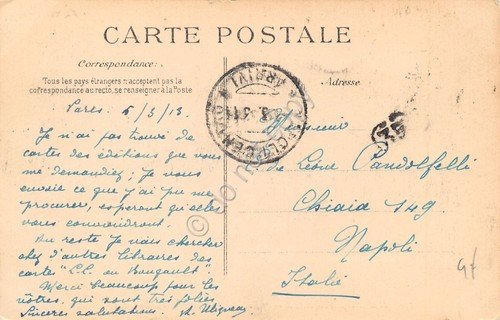 CARTE POSTALE
Correspondance:
Tous les pays étrangers n'acceptent pas la
correspondance au recto, se renseigner à la Poste
Adresse
Paris 6/3/13.
Je n'ai pas trouvé de
cartes des éditions que vous
me demandiez; Je vous
envoie ce que j'ai pu me
procurer, espérant qu'elles
vous conviendront.
Au reste je vais chercher
chez d'autres libraires des
cartes "L.L. ou Bougault"
Merci beaucoup pour les
vôtres qui sont très jolies.
Sincères salutations.
Monsieur
de Leone Pandolfelli
Chiaia 149
Napoli
Italie
ARRIVI